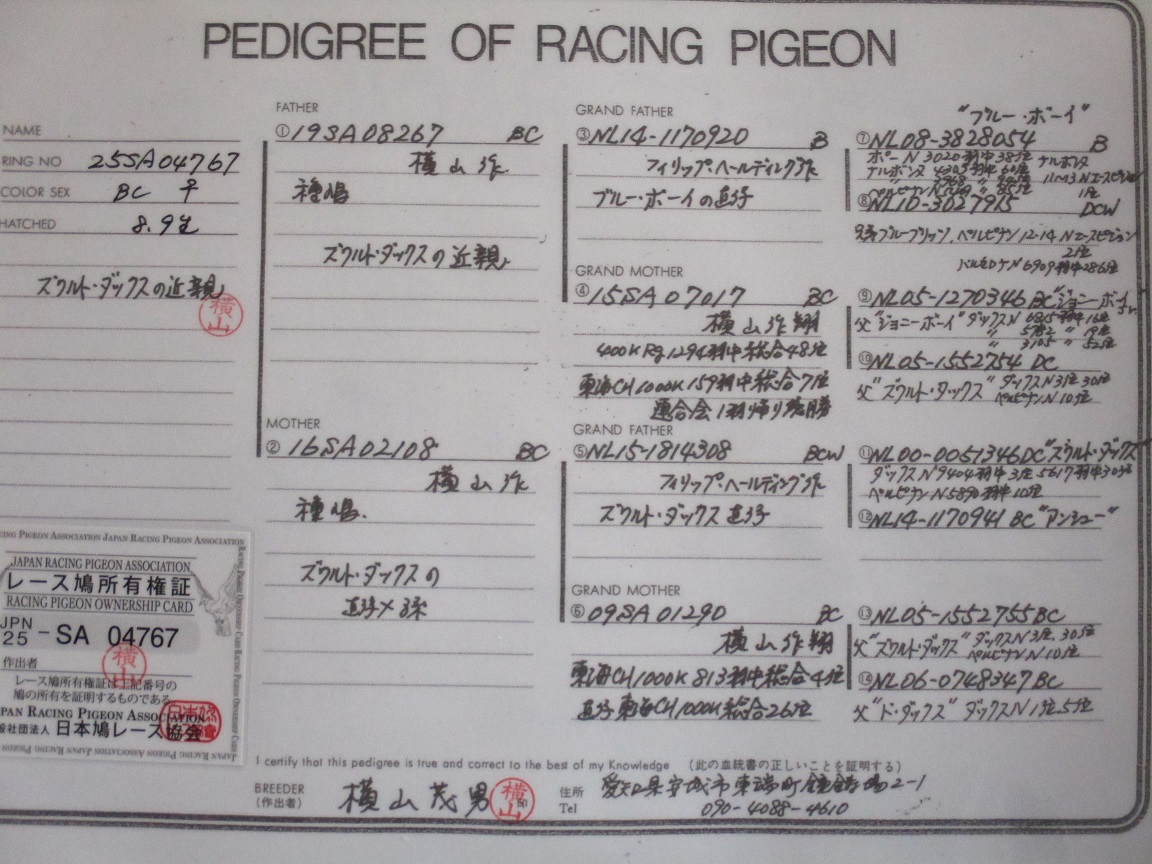 PEDIGREE OF RACING PIGEON
NAME
RING NO 25SA04767
COLOR SEX BC ♀
HATCHED 8.9生
ズウルト・ダックスの近親
横山
FATHER
①19SA08267 BC
横山作
種鳩
ズウルト・ダックスの近親
MOTHER
②16SA02108 BC
横山作
種鳩.
ズウルト・ダックスの
直仔×孫
GRAND FATHER
③NL14-1170920 B
フィリップ・ヘールディング作
ブルー・ボーイの直仔
GRAND MOTHER
④15SA07017 BC
横山作翔
400K Rg.1294羽中総合48位
東海CH1000K159羽中総合7位
連合会1羽帰り優勝
GRAND FATHER
⑤NL15-1814308 BCW
フィリップ・ヘールディング作
ズウルト・ダックス直仔
GRAND MOTHER
⑥09SA01290 BC
横山作翔
東海CH1000K813羽中総合4位
直仔東海CH1000K総合26位
"ブルー・ボーイ"
⑦NL08-3828054 B
ポーN3020羽中38位 ナルボンヌ
ナルボンヌ4303羽中60位
⑧NL10-3027915 DCW
ペルピナン12-14Nエースピジョン
2位
バルセロナN6909羽中286位
⑨NL05-1270346 BC"ジョニーボーイJr.
父"ジョニーボーイ"ダックスN6815羽中16位
〃 5782 〃 19位
〃 3105 〃 52位
⑩NL05-1552754 DC
父"ズウルト・ダックス"ダックスN3位30位
ペルピナンN10位
⑪NL00-0051346DC"ズウルト・ダックス
ダックスN9404羽中3位5617羽中30位
ペルピナンN5890羽中10位
⑫NL14-1170941 BC"アンシュー"
⑬NL05-1552755BC
父"ズウルト・ダックス"ダックスN3位,30位
ペルピナンN10位
⑭NL06-0748347BC
父"ド・ダックス"ダックスN1位5位
RACING PIGEON ASSOCIATION JAPAN RACING PIGEON ASSOCIATION
JAPAN RACING PIGEON ASSOCIATION
レース鳩所有権証
RACING PIGEON OWNERSHIP CARD
JPN
25 - SA 04767
作出者
横山
レース鳩所有権証は上記番号の
鳩の所有を証明するものである
JAPAN RACING PIGEON ASSOCIATION
一般社団法人 日本鳩レース協会
I certify that this pedigree is true and correct to the best of my Knowledge (此の血統書の正しいことを証明する)
BREEDER
(作出者) 横山茂男 横山
住所 愛知県安城市東端町鐘鋳場2-1
Tel 090-4088-4610